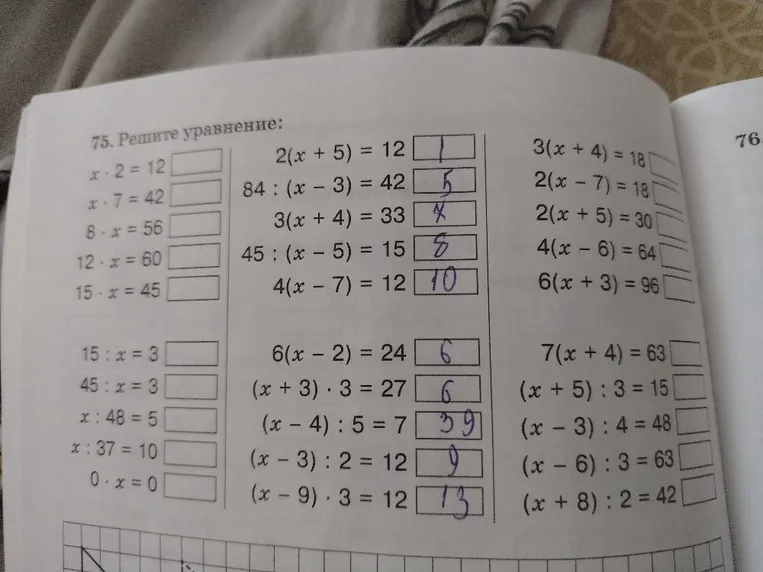 75. Решите уравнение:
x · 2 = 12
x · 7 = 42
8 · x = 56
12 · x = 60
15 · x = 45
15 : x = 3
45 : x = 3
x : 48 = 5
x : 37 = 10
0 · x = 0
2(x + 5) = 12 1
84 : (x − 3) = 42 5
3(x + 4) = 33 7
45 : (x − 5) = 15 8
4(x − 7) = 12 10
6(x − 2) = 24 6
(x + 3) · 3 = 27 6
(x − 4) : 5 = 7 39
(x − 3) : 2 = 12 9
(x − 9) · 3 = 12 13
3(x + 4) = 18
2(x − 7) = 18
2(x + 5) = 30
4(x − 6) = 64
6(x + 3) = 96
7(x + 4) = 63
(x + 5) : 3 = 15
(x − 3) : 4 = 48
(x − 6) : 3 = 63
(x + 8) : 2 = 42
76.